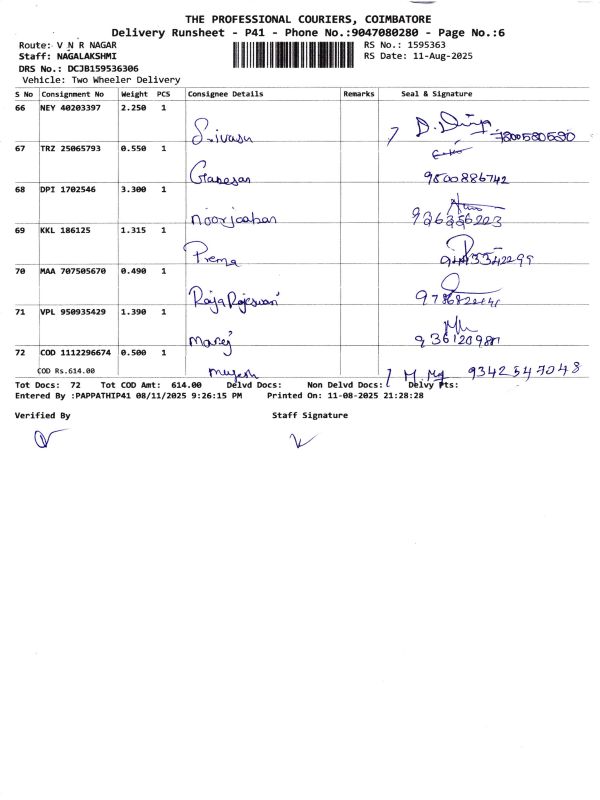 THE PROFESSIONAL COURIERS, COIMBATORE
Delivery Runsheet - P41 - Phone No.:9047080280 - Page No.:6
Route: V N R NAGAR RS No.: 1595363
Staff: NAGALAKSHMI RS Date: 11-Aug-2025
DRS No.: DCJB159536306
Vehicle: Two Wheeler Delivery
S No Consignment No Weight PCS Consignee Details Remarks Seal & Signature
66 NEY 40203397 2.250 1
Sivasu
67 TRZ 25065793 0.550 1
Ganesan 9500886742
68 DPI 1702546 3.300 1
noorjaahan
69 KKL 186125 1.315 1
Prema
70 MAA 707505670 0.490 1
Raja Rajeswari
71 VPL 950935429 1.390 1
Manoj
72 COD 1112296674 0.500 1
COD Rs.614.00 Mugesh 9342547048
Tot Docs: 72 Tot COD Amt: 614.00 Delvd Docs: Non Delvd Docs: Delvy Pts:
Entered By :PAPPATHIP41 08/11/2025 9:26:15 PM Printed On: 11-08-2025 21:28:28
Verified By Staff Signature